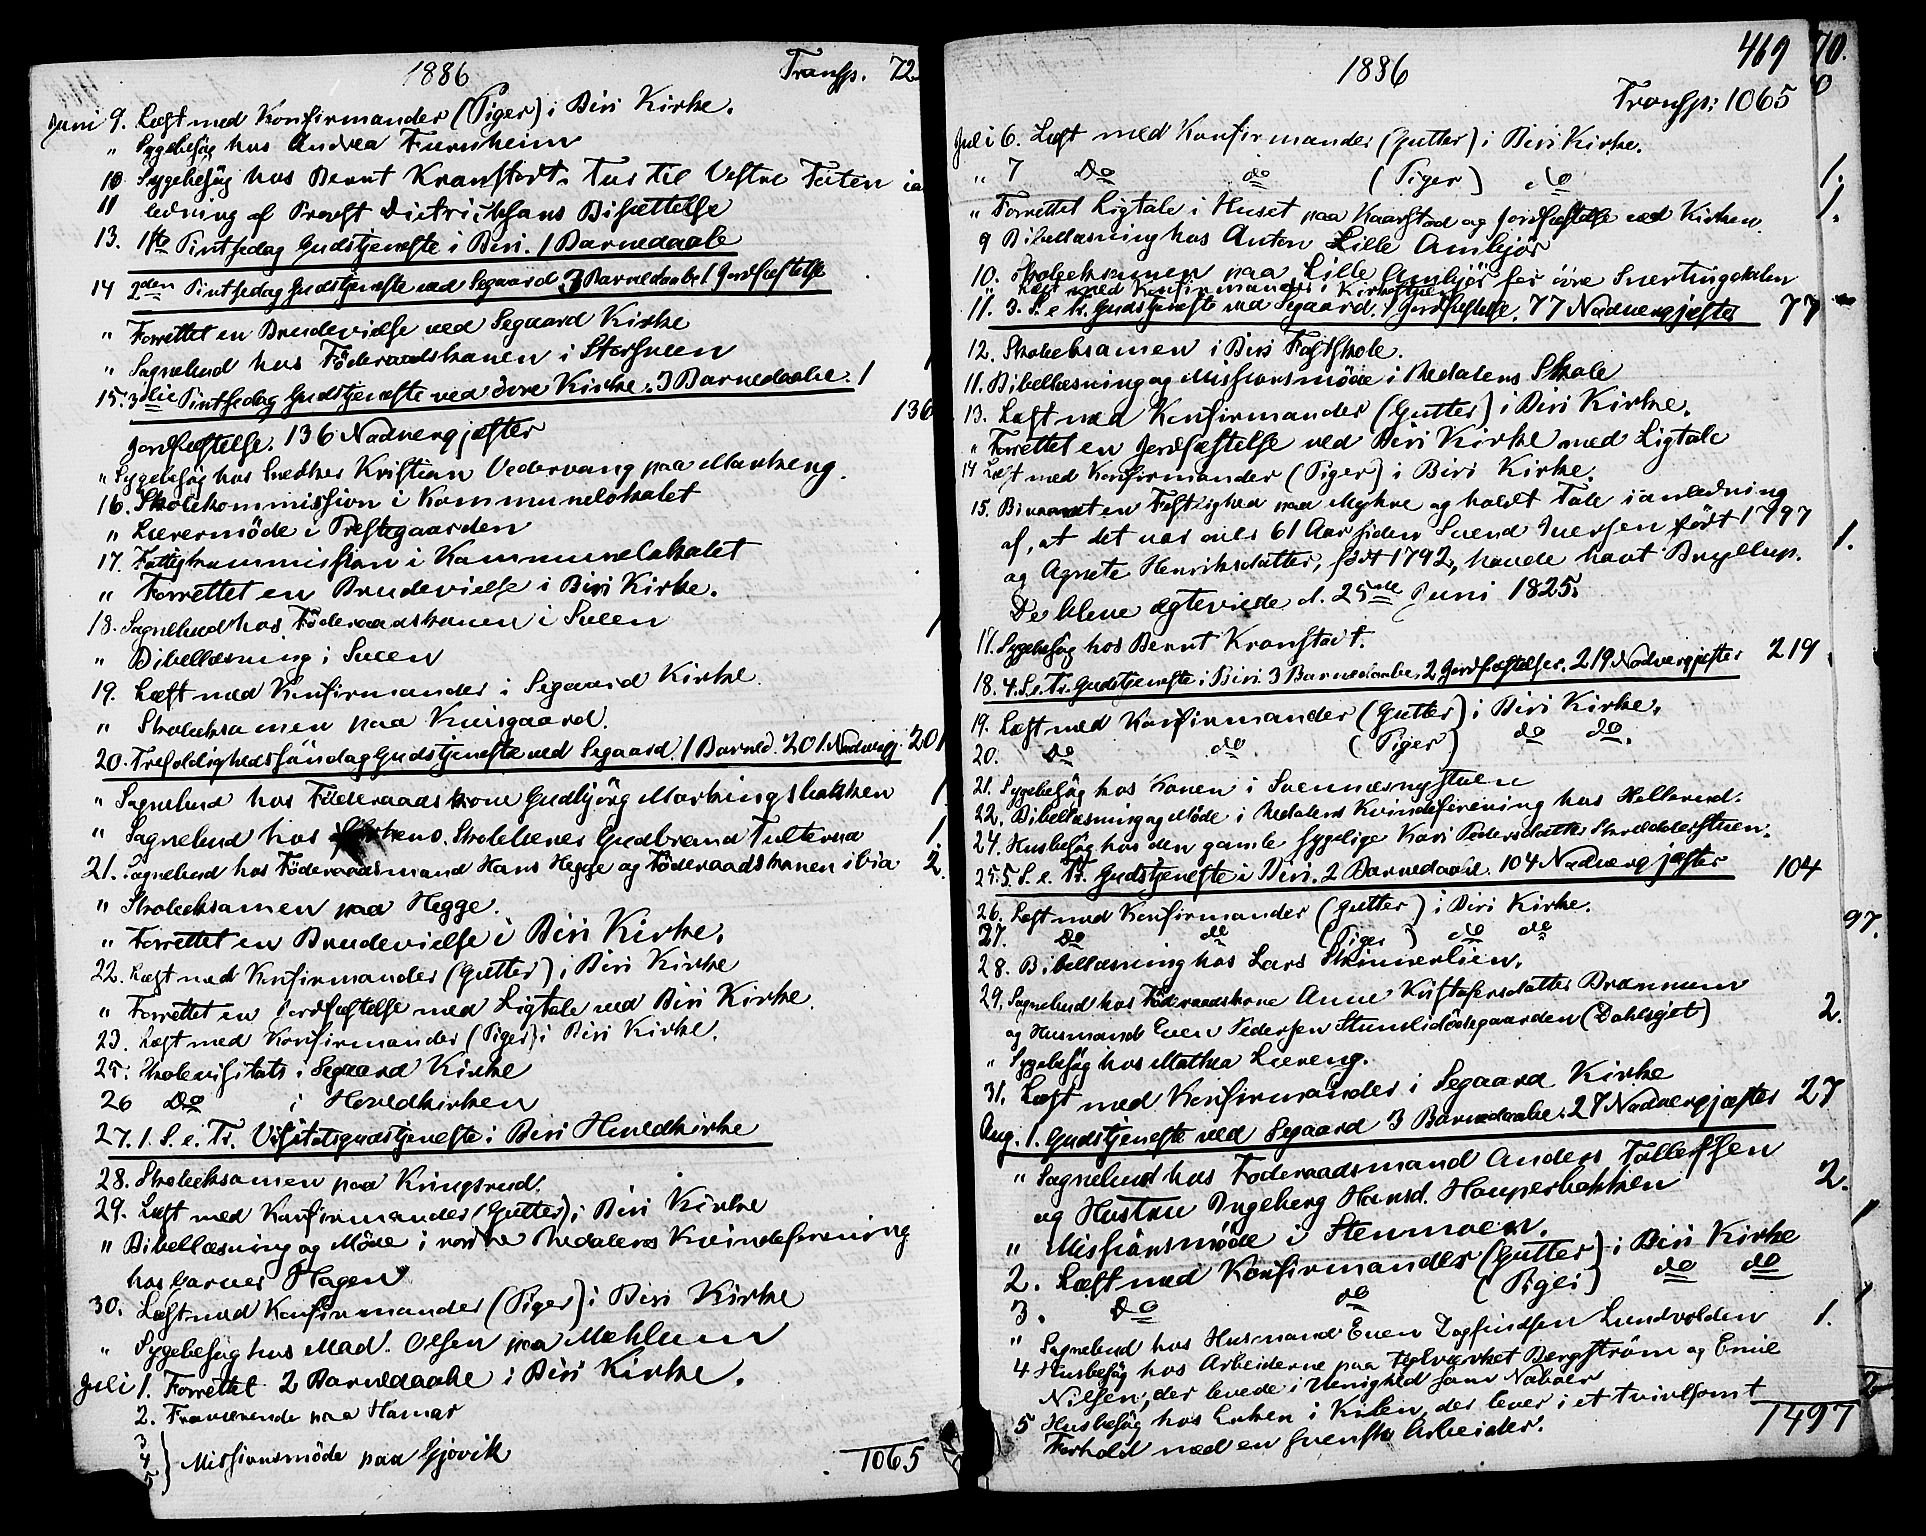 1886 Transp. 72
Juni 9. Læst med Konfirmander (Piger) i Biri Kirke.
" Sygebesøg hos Andrea Furuheim
10 Sygebesøg hos Bernt Kranstadt. Tur til Vestre Toten i an
11 ledning af Provst Dietrichsons Bisættelse
13. 1ste Pintsedag Gudstjeneste i Biri. 1 Barnedaab
14 2den Pintsedag Gudstjeneste ved Segaard 3 Barnedaab. 1 Jordfæstelse
" Forrettet en Brudevielse ved Segaard Kirke
" Sognebud hos Föderaadskonen i Storsveen 1
15. 3die Pintsedag Gudstjeneste ved övre Kirke. 3 Barnedaabe. 1
Jordfæstelse. 136 Nadvergjæster 136
" Sygebesøg hos Snedker Kristian Vedervang paa Markeng.
16. Skolekommission i Kommunelokalet
" Lærermöde i Prestegaarden
17. Fattigkommission i Kommunelokalet
" Forrettet en Brudevielse i Biri Kirke.
18. Sognebud hos Föderaadskonen i Sveen 1
" Bibellæsning i Sveen
19. Læst med Konfirmander i Segaard Kirke.
" Skoleeksamen paa Knisgaard.
20. Trefoldighedssöndag Gudstjeneste ved Segaard. 1 Barned. 201. Nadvergj. 201
" Sognebud hos Föderaadskone Gudbjörg Markingsbakken 1
" Sognebud hos Skolelærer Gudbrand Tulterud 1
21. Sognebud hos Föderaadsmand Hans Hegge og Föderaadskonen ibid 2.
" Skoleeksamen paa Hegge.
" Forrettet en Brudevielse i Biri Kirke.
22. Læst med Konfirmander (Gutter) i Biri Kirke
" Forrettet en Jordfæstelse med Ligtale ved Biri Kirke.
23. Læst med Konfirmander (Piger) i Biri Kirke.
25. Skolevisitats i Segaard Kirke
26 Do i Hovedkirken
27. 1. S. e. Tr. Visitatsgudstjeneste i Biri Hovedkirke
28. Skoleeksamen paa Kringsrud.
29. Læst med Konfirmander (Gutter) i Biri Kirke
" Bibellæsning og Möde i nordre Redalens Kvindeforening
hos Hagen
30. Læst med Konfirmander (Piger) i Biri Kirke
" Sygebesøg hos Mad. Olsen paa Mæhlum
Juli 1. Forrettet 2 Barnedaabe i Biri Kirke.
2. Fraværende paa Hamar
3
4 } Missionsmöde paa Gjøvik
5
1065
469 70.
1886
Transp: 1065 0
Juli 6. Læst med Konfirmander (Gutter) i Biri Kirke.
" 7 Do do (Piger) do 1.
" Forrettet Ligtale i Huset paa Kaarstad og Jordfæstelse ved Kirken. 1.
9 Bibellæsning hos Anton Lille Amkjör
10. Skoleeksamen paa Lille Amkjör for övre Snertingdalen
" Læst med Konfirmander i Kirken
11. 3. S. e Tr. Gudstjeneste ved Segaard. 1 Jordfæstelse. 77 Nadvergjæster 77
12. Skoleeksamen i Biri Fastskole.
11. Bibellæsning og Missionsmöde i Redalens Skole
13. Læst med Konfirmander (Gutter) i Biri Kirke.
" Forrettet en Jordfæstelse ved Biri Kirke med Ligtale
14 Læst med Konfirmander (Piger) i Biri Kirke.
15. Bivaanet en Festlighed paa Myhre og holdt Tale i anledning
af, at det var 61 Aar siden Svend Iversen född 1797 1.
og Agnete Henriksdatter, född 1792, havde havt Bryllup.
De bleve ægteviede d. 25de Juni 1825.
17. Sygebesøg hos Bernt Kranstadt.
18. 4. S. e. Tr. Gudstjeneste i Biri. 3 Barnedaabe. 2 Jordfæstelser. 219 Nadvergjæster 219
19. Læst med Konfirmander (Gutter) i Biri Kirke.
20. Do do (Piger) do do.
21. Sygebesøg hos Konen i Svennesnystuen
22. Bibellæsning og Möde i Redalens Kvindeforening hos Hellerud.
24. Husbesøg hos den gamle sygelige Kari Pedersdatter Skrædderstuen.
25. 5. S. e. Tr. Gudstjeneste i Biri. 2 Barnedaabe. 104 Nadvergjæster 104
26. Læst med Konfirmander (Gutter) i Biri Kirke.
27. Do do (Piger) do do 97.
28. Bibellæsning hos Lars Skinnerlien.
29. Sognebud hos Föderaadskone Anne Kristofersdatter Brænnum
og Husmand Even Pedersen Stumlidödegaarden (Dahlsjet) 2.
" Sygebesøg hos Mathea Liereng.
31. Læst med Konfirmander i Segaard Kirke
Aug. 1. Gudstjeneste ved Segaard 3 Barnedaabe. 27 Nadvergjæster 27
" Sognebud hos Föderaadsmand Anders Tollefsen
og Hustru Ingeborg Hansd. Houperbakken 2.
" Missionsmöde i Stenmoen. 1
2. Læst med Konfirmander (Gutter) i Biri Kirke
3. Do do (Piger) do do
" Sognebud hos Husmand Even Dagfindsen Lundvolden 1. 1
4 Husbesøg hos Arbeiderne paa Teglværket Bergström og Emil
Nilsen, der levede i Uenighed som Naboer 2
5 Husbesøg hos Enken i Kilen, der lever i et tvivlsomt
Forhold med en svensk Arbeider. 1497